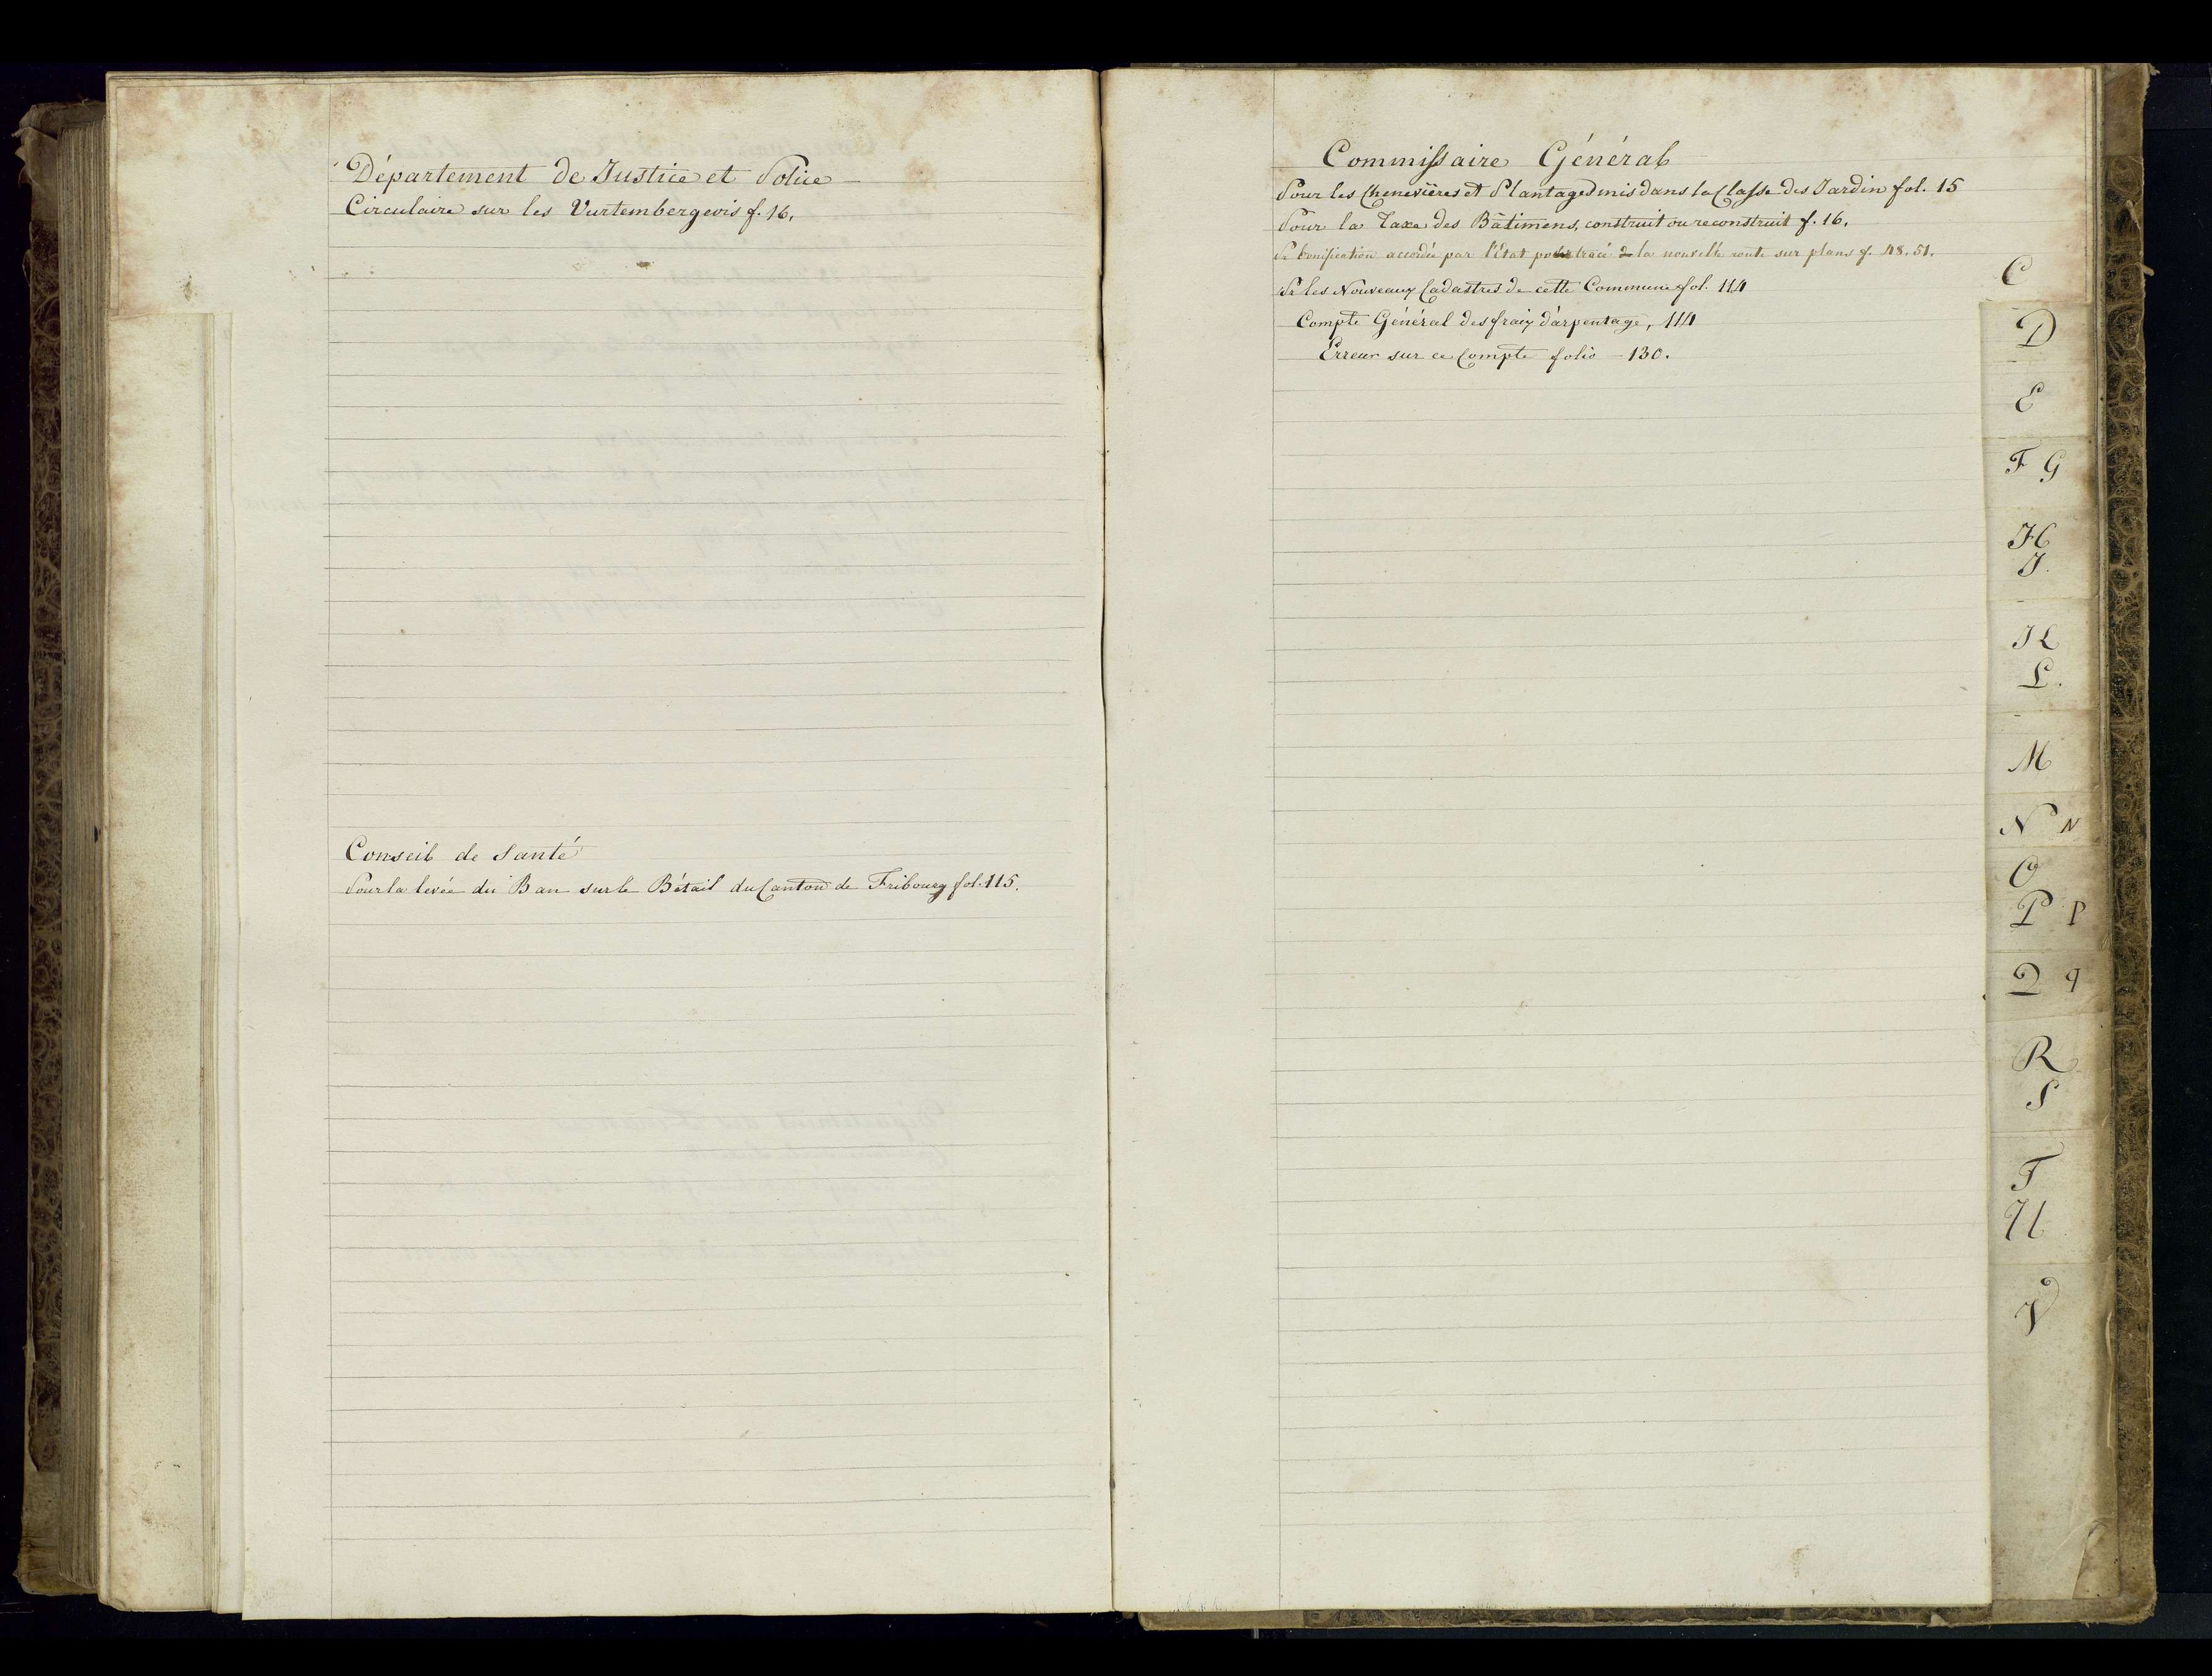 Département de Justice et Police
Circulaire sur les Vurtembergeois f. 16.
Conseil de Santé
Pour la levée du Ban sur le Bétail du Canton de Fribourg fol. 115.
Commissaire Général
Pour les Chenevières et Plantages mis dans la Classe des Jardin fol. 15
Pour la Taxe des Bâtimens, construit ou reconstruit f. 16.
Pr bonification accordée par l'État pour tracé de la nouvelle route sur plans f. 48. 51.
Pr les Nouveaux Cadastres de cette Commune fol. 114
Compte Général des fraix d'arpentage, 114
Erreur sur ce Compte folio - 130.
C
D
E
F G
H
J.
K
L.
M
N N
O
P P
Q q
R
S
T
U
V